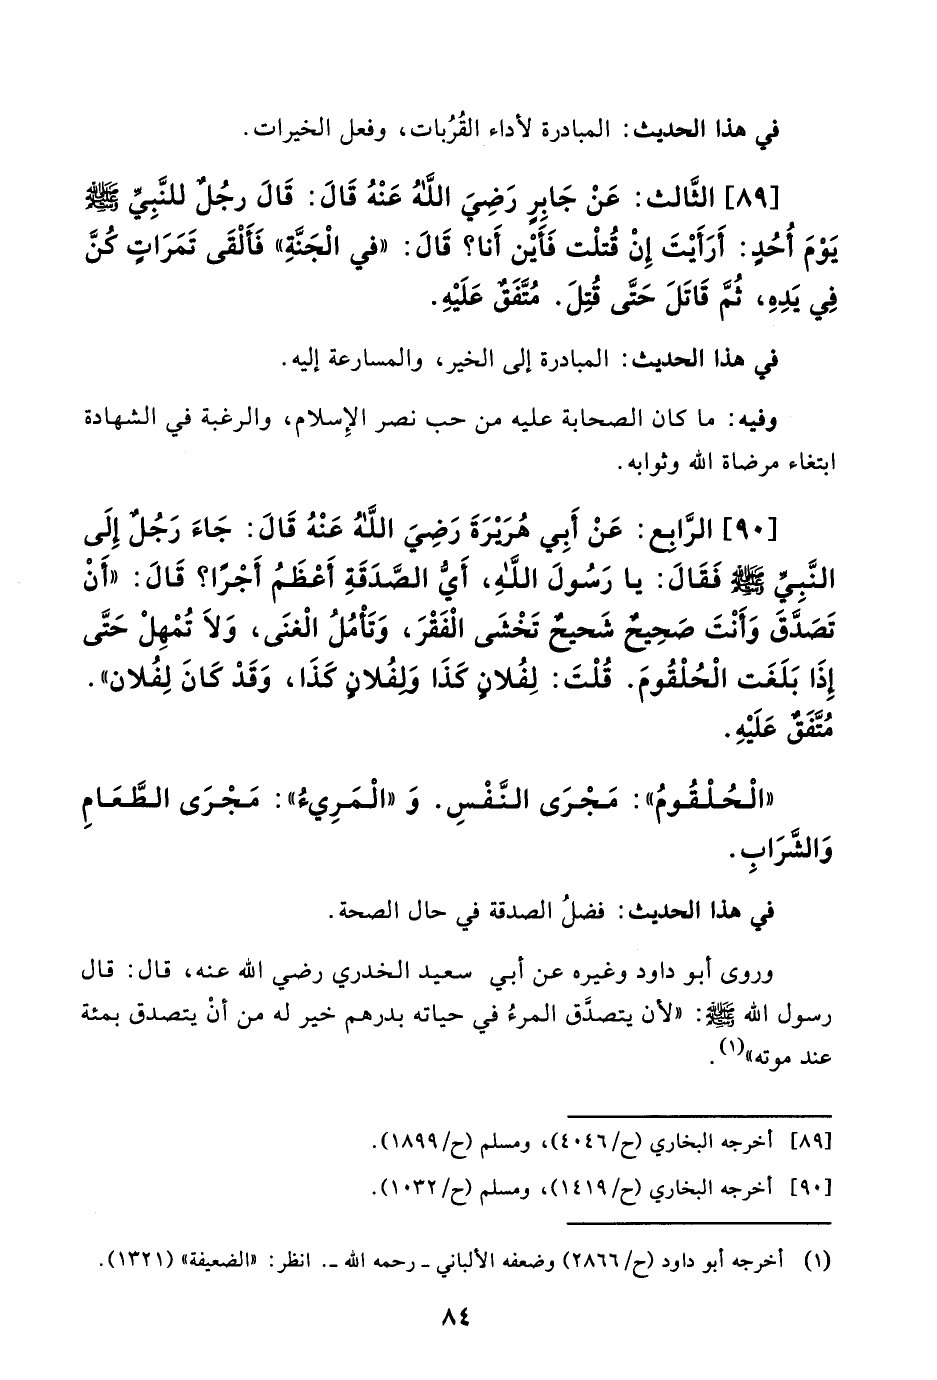 في هذا الحديث: المبادرة لأداء القُرُبات، وفعل الخيرات.
[٨٩] الثَّالث: عَنْ جَابِرٍ رَضِيَ اللَّهُ عَنْهُ قَالَ: قَالَ رجُلٌ للنَّبِيِّ ﷺ
يَوْمَ أُحُدٍ: أَرَأَيْتَ إِنْ قُتلْت فَأَيْن أَنا؟ قَالَ: «في الْجَنَّةِ» فَأَلْقَى تَمَرَاتٍ كُنَّ
فِي يَدِهِ، ثُمَّ قَاتَلَ حَتَّى قُتِلَ. مُتَّفَقٌ عَلَيْهِ.
في هذا الحديث: المبادرة إلى الخير، والمسارعة إليه.
وفيه: ما كان الصحابة عليه من حب نصر الإسلام، والرغبة في الشهادة
ابتغاء مرضاة الله وثوابه.
[٩٠] الرَّابِع: عَنْ أَبِي هُرَيْرَةَ رَضِيَ اللَّهُ عَنْهُ قَالَ: جَاءَ رَجُلٌ إِلَى
النَّبِيِّ ﷺ فَقَالَ: يا رَسُولَ اللَّهِ، أَيُّ الصَّدَقَةِ أَعْظَمُ أَجْرًا؟ قَالَ: «أَنْ
تَصَدَّقَ وَأَنْتَ صَحِيحٌ شَحيحٌ تَخْشَى الْفَقْرَ، وَتَأْمُلُ الْغنَى، وَلاَ تُمْهِلْ حَتَّى
إِذَا بَلَغَت الْحُلْقُومَ. قُلْتَ: لِفُلانٍ كَذَا وَلِفُلانٍ كَذَا، وَقَدْ كَانَ لِفُلان».
مُتَّفَقٌ عَلَيْهِ.
«الْحُلْقُومُ»: مَجْرَى النَّفْسِ. وَ «الْمَرِيءُ»: مَجْرَى الطَّعَامِ
وَالشَّرَابِ.
في هذا الحديث: فضلُ الصدقة في حال الصحة.
وروى أبو داود وغيره عن أبي سعيد الخدري رضي الله عنه، قال: قال
رسول الله ﷺ: «لأن يتصدَّق المرءُ في حياته بدرهم خير له من أنْ يتصدق بمئة
عند موته»(١).
[٨٩] أخرجه البخاري (ح/٤٠٤٦)، ومسلم (ح/١٨٩٩).
[٩٠] أخرجه البخاري (ح/١٤١٩)، ومسلم (ح/١٠٣٢).
(١) أخرجه أبو داود (ح/٢٨٦٦) وضعفه الألباني ـ رحمه الله ـ. انظر: «الضعيفة» (١٣٢١).
٨٤